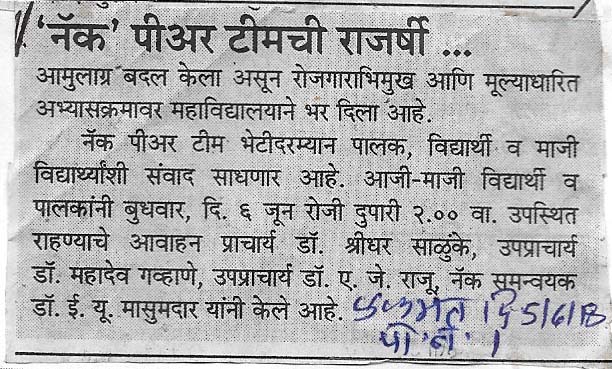 ‘नॅक’ पीअर टीमची राजर्षी ...
आमुलाग्र बदल केला असून रोजगाराभिमुख आणि मूल्याधारित
अभ्यासक्रमावर महाविद्यालयाने भर दिला आहे.
नॅक पीअर टीम भेटीदरम्यान पालक, विद्यार्थी व माजी
विद्यार्थ्यांशी संवाद साधणार आहे. आजी-माजी विद्यार्थी व
पालकांनी बुधवार, दि. ६ जून रोजी दुपारी २.०० वा. उपस्थित
राहण्याचे आवाहन प्राचार्य डॉ. श्रीधर साळुंके, उपप्राचार्य
डॉ. महादेव गव्हाणे, उपप्राचार्य डॉ. ए. जे. राजू, नॅक समन्वयक
डॉ. ई. यू. मासुमदार यांनी केले आहे.
एकमत दि 5/6/18